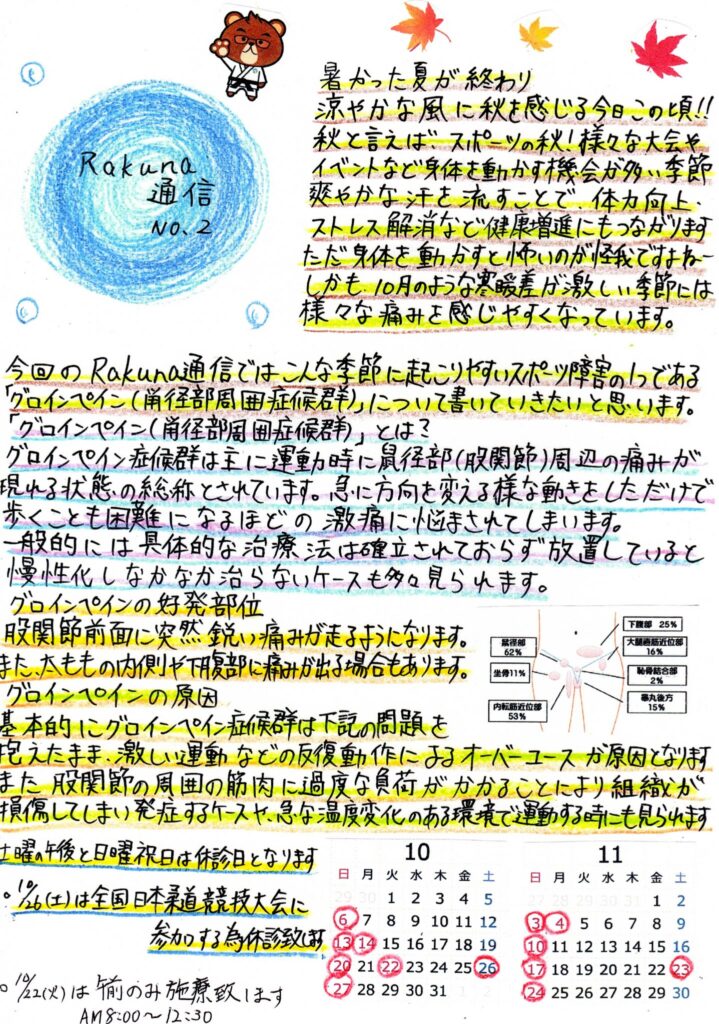 Rakuna
通信
NO.2
暑かった夏が終わり
涼やかな風に秋を感じる今日この頃!!
秋と言えば、スポーツの秋!様々な大会や
イベントなど身体を動かす機会が多い季節
爽やかな汗を流すことで、体力向上、
ストレス解消など健康増進にもつながります
ただ身体を動かすと怖いのが怪我ですよねー
しかも、10月のような寒暖差が激しい季節には
様々な痛みを感じやすくなっています。
今回のRakuna通信ではこんな季節に起こりやすいスポーツ障害の1つである
「グロインペイン(鼡径部周囲症候群)」について書いていきたいと思います。
「グロインペイン(鼡径部周囲症候群)」とは?
グロインペイン症候群は主に運動時に鼠径部(股関節)周辺の痛みが
現れる状態の総称とされています。急に方向を変える様な動きをしただけで
歩くことも困難になるほどの激痛に悩まされてしまいます。
一般的には具体的な治療法は確立されておらず放置していると
慢性化しなかなか治らないケースも多々見られます。
グロインペインの好発部位
股関節前面に突然鋭い痛みが走るようになります。
また、太ももの内側や下腹部に痛みが出る場合もあります。
鼠径部
62%
坐骨11%
内転筋近位部
53%
下腹部 25%
大腿直筋近位部
16%
恥骨結合部
2%
睾丸後方
15%
グロインペインの原因
基本的にグロインペイン症候群は下記の問題を
抱えたまま、激しい運動などの反復動作によるオーバーユースが原因となります
また股関節の周囲の筋肉に過度な負荷がかかることにより組織が
損傷してしまい発症するケースや、急な温度変化のある環境で運動する時にも見られます
土曜の午後と日曜祝日は休診日となります
。10/26(土)は全国日本柔道競技大会に
参加する為休診致します
。10/22(火)は午前のみ施療致します
AM8:00〜12:30
10
日 月 火 水 木 金 土
29 30 1 2 3 4 5
6 7 8 9 10 11 12
13 14 15 16 17 18 19
20 21 22 23 24 25 26
27 28 29 30 31 1 2
11
日 月 火 水 木 金 土
27 28 29 30 31 1 2
3 4 5 6 7 8 9
10 11 12 13 14 15 16
17 18 19 20 21 22 23
24 25 26 27 28 29 30